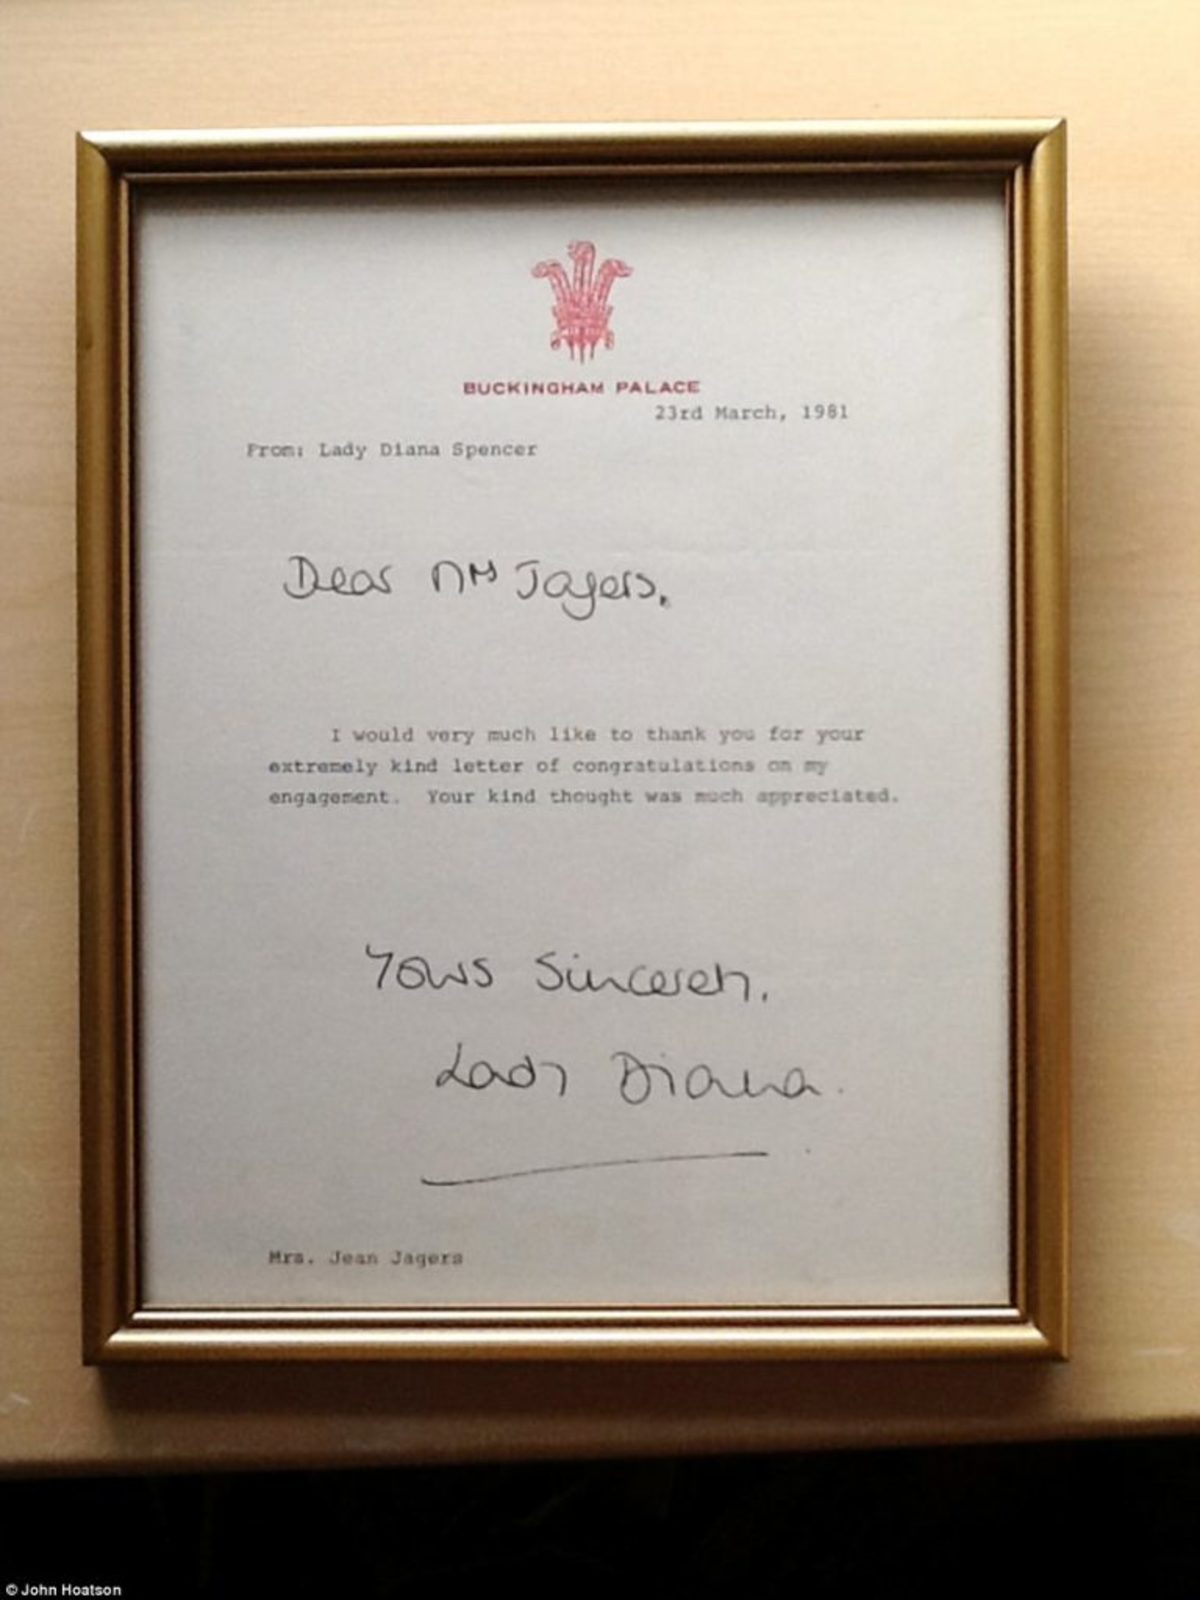 BUCKINGHAM PALACE
23rd March, 1981
From: Lady Diana Spencer
Dear Mrs Jagers.
I would very much like to thank you for your
extremely kind letter of congratulations on my
engagement. Your kind thought was much appreciated.
Yours Sincerely,
Lady Diana.
Mrs. Jean Jagers
© John Hoatson